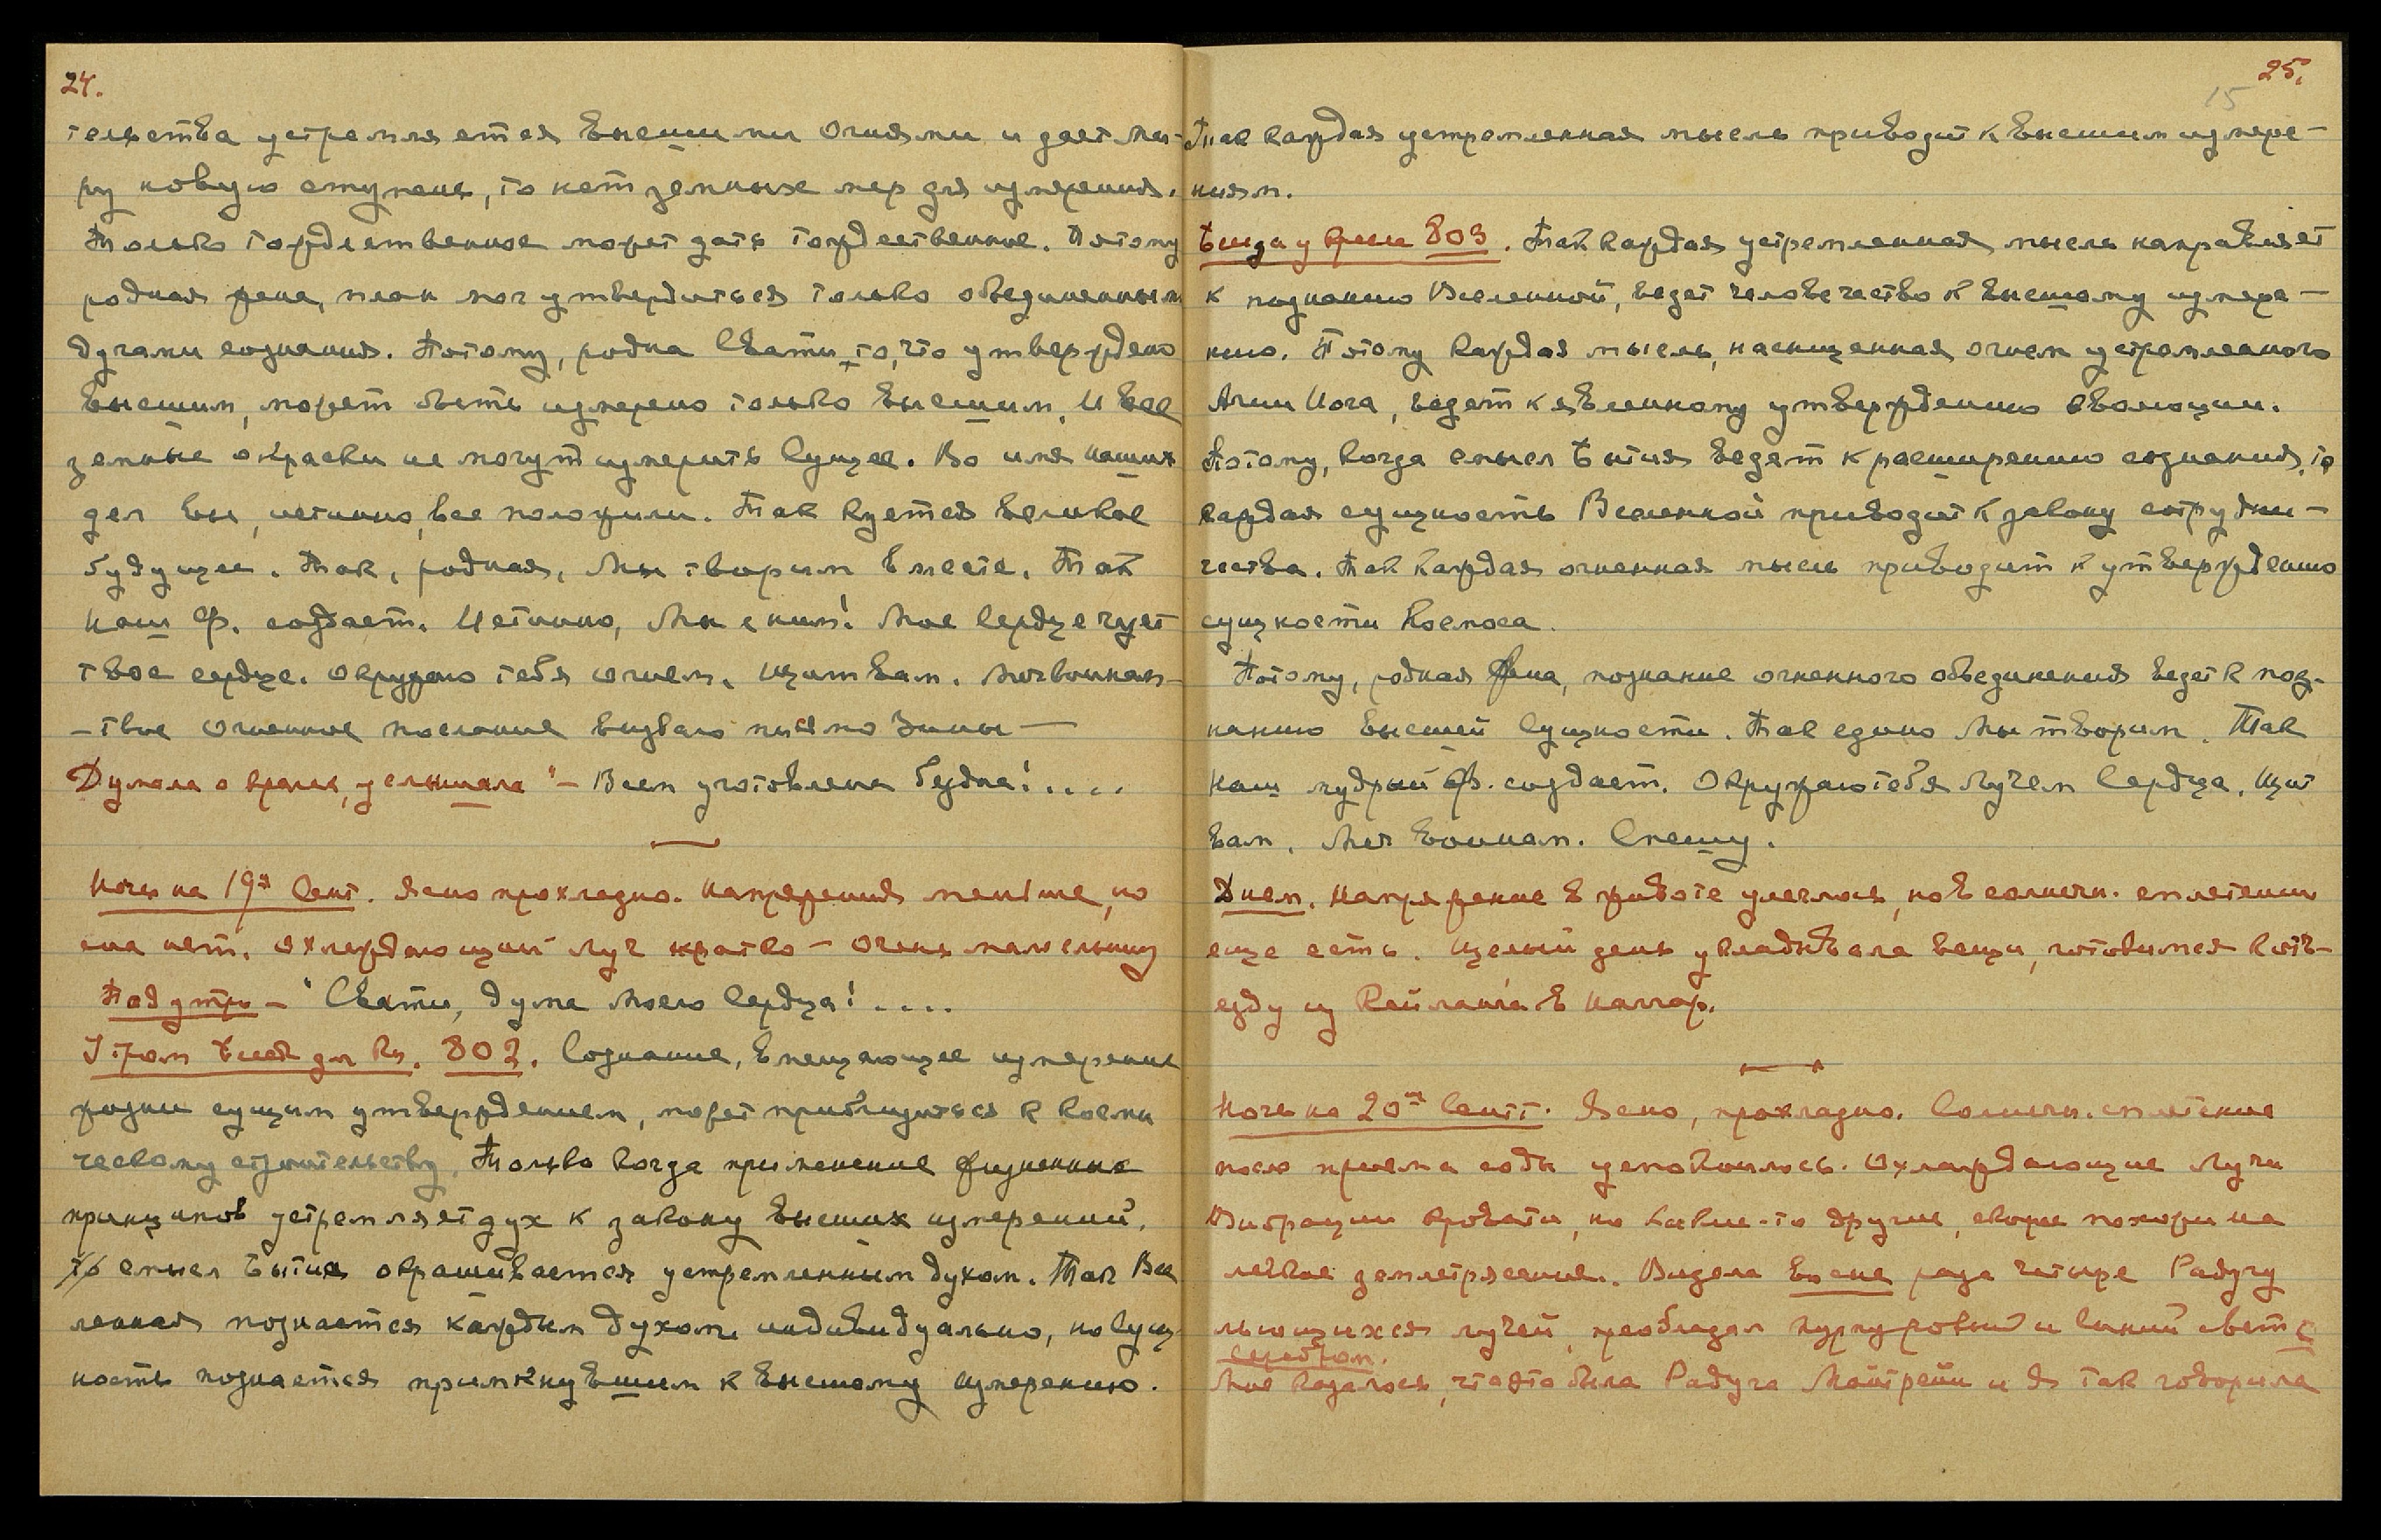 24.
тельства устремляется высшими огнями и дает Ми-
ру новую ступень, то нет земных мер для измерения.
Только торжественное может дать торжественное. Потому
родная жена, план мог утвердиться только объединенными
духами сознания. Потому, родна Свати, то, что утверждено
высшим, может быть измерено только высшим, и все
земные окраски не могут измерить Сущее. Во имя наших
дел вы, истинно, все положили. Так куется великое
будущее. Так, родная, Мы творим вместе. Так
наш Ф. создает. Истинно, Мы с ним! Мое Сердце чует
твое сердце. Окружаю тебя огнем. Щит вам. Меч воинам –
– твое огненное послание
Думала о врагах, услышала "– Всем уготовлена бездна!....
Ночь на 19ое Сент. Ясно прохладно. Напряжения меньше, но
сна нет. Охлаждающий луч кратко – Очень мало слышу
Под утро – "Свати, дума Моего Сердца!....
Утром Бесед для Кн. 802. Сознание, вмещающее измерение
жизни сущим утверждением, может приблизиться к косми
ческому строительству. Только когда применение жизненных
принципов устремляет дух к закону высших измерений,
то смысл Бытия окрашивается устремленным духом. Так Все
ленная познается каждым духом индивидуально, но Сущ
ность познается примкнувшим к высшему измерению.
25.
15
Так каждая устремленная мысль приводит к высшим измере–
ниям.
803. Так каждая устремленная мысль направляет
к познанию Вселенной, ведет человечество к высшему измере–
нию. Потому каждая мысль, насыщенная огнем устремленного
Агни Йога, ведет к явленному утверждению эволюции.
Потому, когда смысл Бытия ведет к расширению сознания, то
каждая сущность Вселенной приводит к закону сотрудни–
чества. Так каждая огненная мысль приводит к утверждению
сущности Космоса.
Потому, родная жена, познание огненного объединения ведет к поз-
нанию высшей Сущности. Так едино Мы творим. Так
наш мудрый Ф. создает. Окружаю тебя лучем Сердца. Щит
вам. Меч воинам. Спешу.
Днем. Напряжение в животе улеглось, но в солнечн. сплетении
еще есть. Целый день укладывала вещи, готовимся к отъ–
езду из Кейланга в Наггар.
Ночь на 20ое Сент. Ясно, прохладно. Солнечн. сплетение
после приема соды успокоилось. Охлаждающие лучи
Вибрации кровати, но какие-то другие, скорее похожи на
легкое землетрясение. Видела во сне раза четыре Радугу
льющихся лучей, преобладал пурпуровый и синий свет с
серебром.
Мне казалось, что это была Радуга Майтрейи и я так говорила